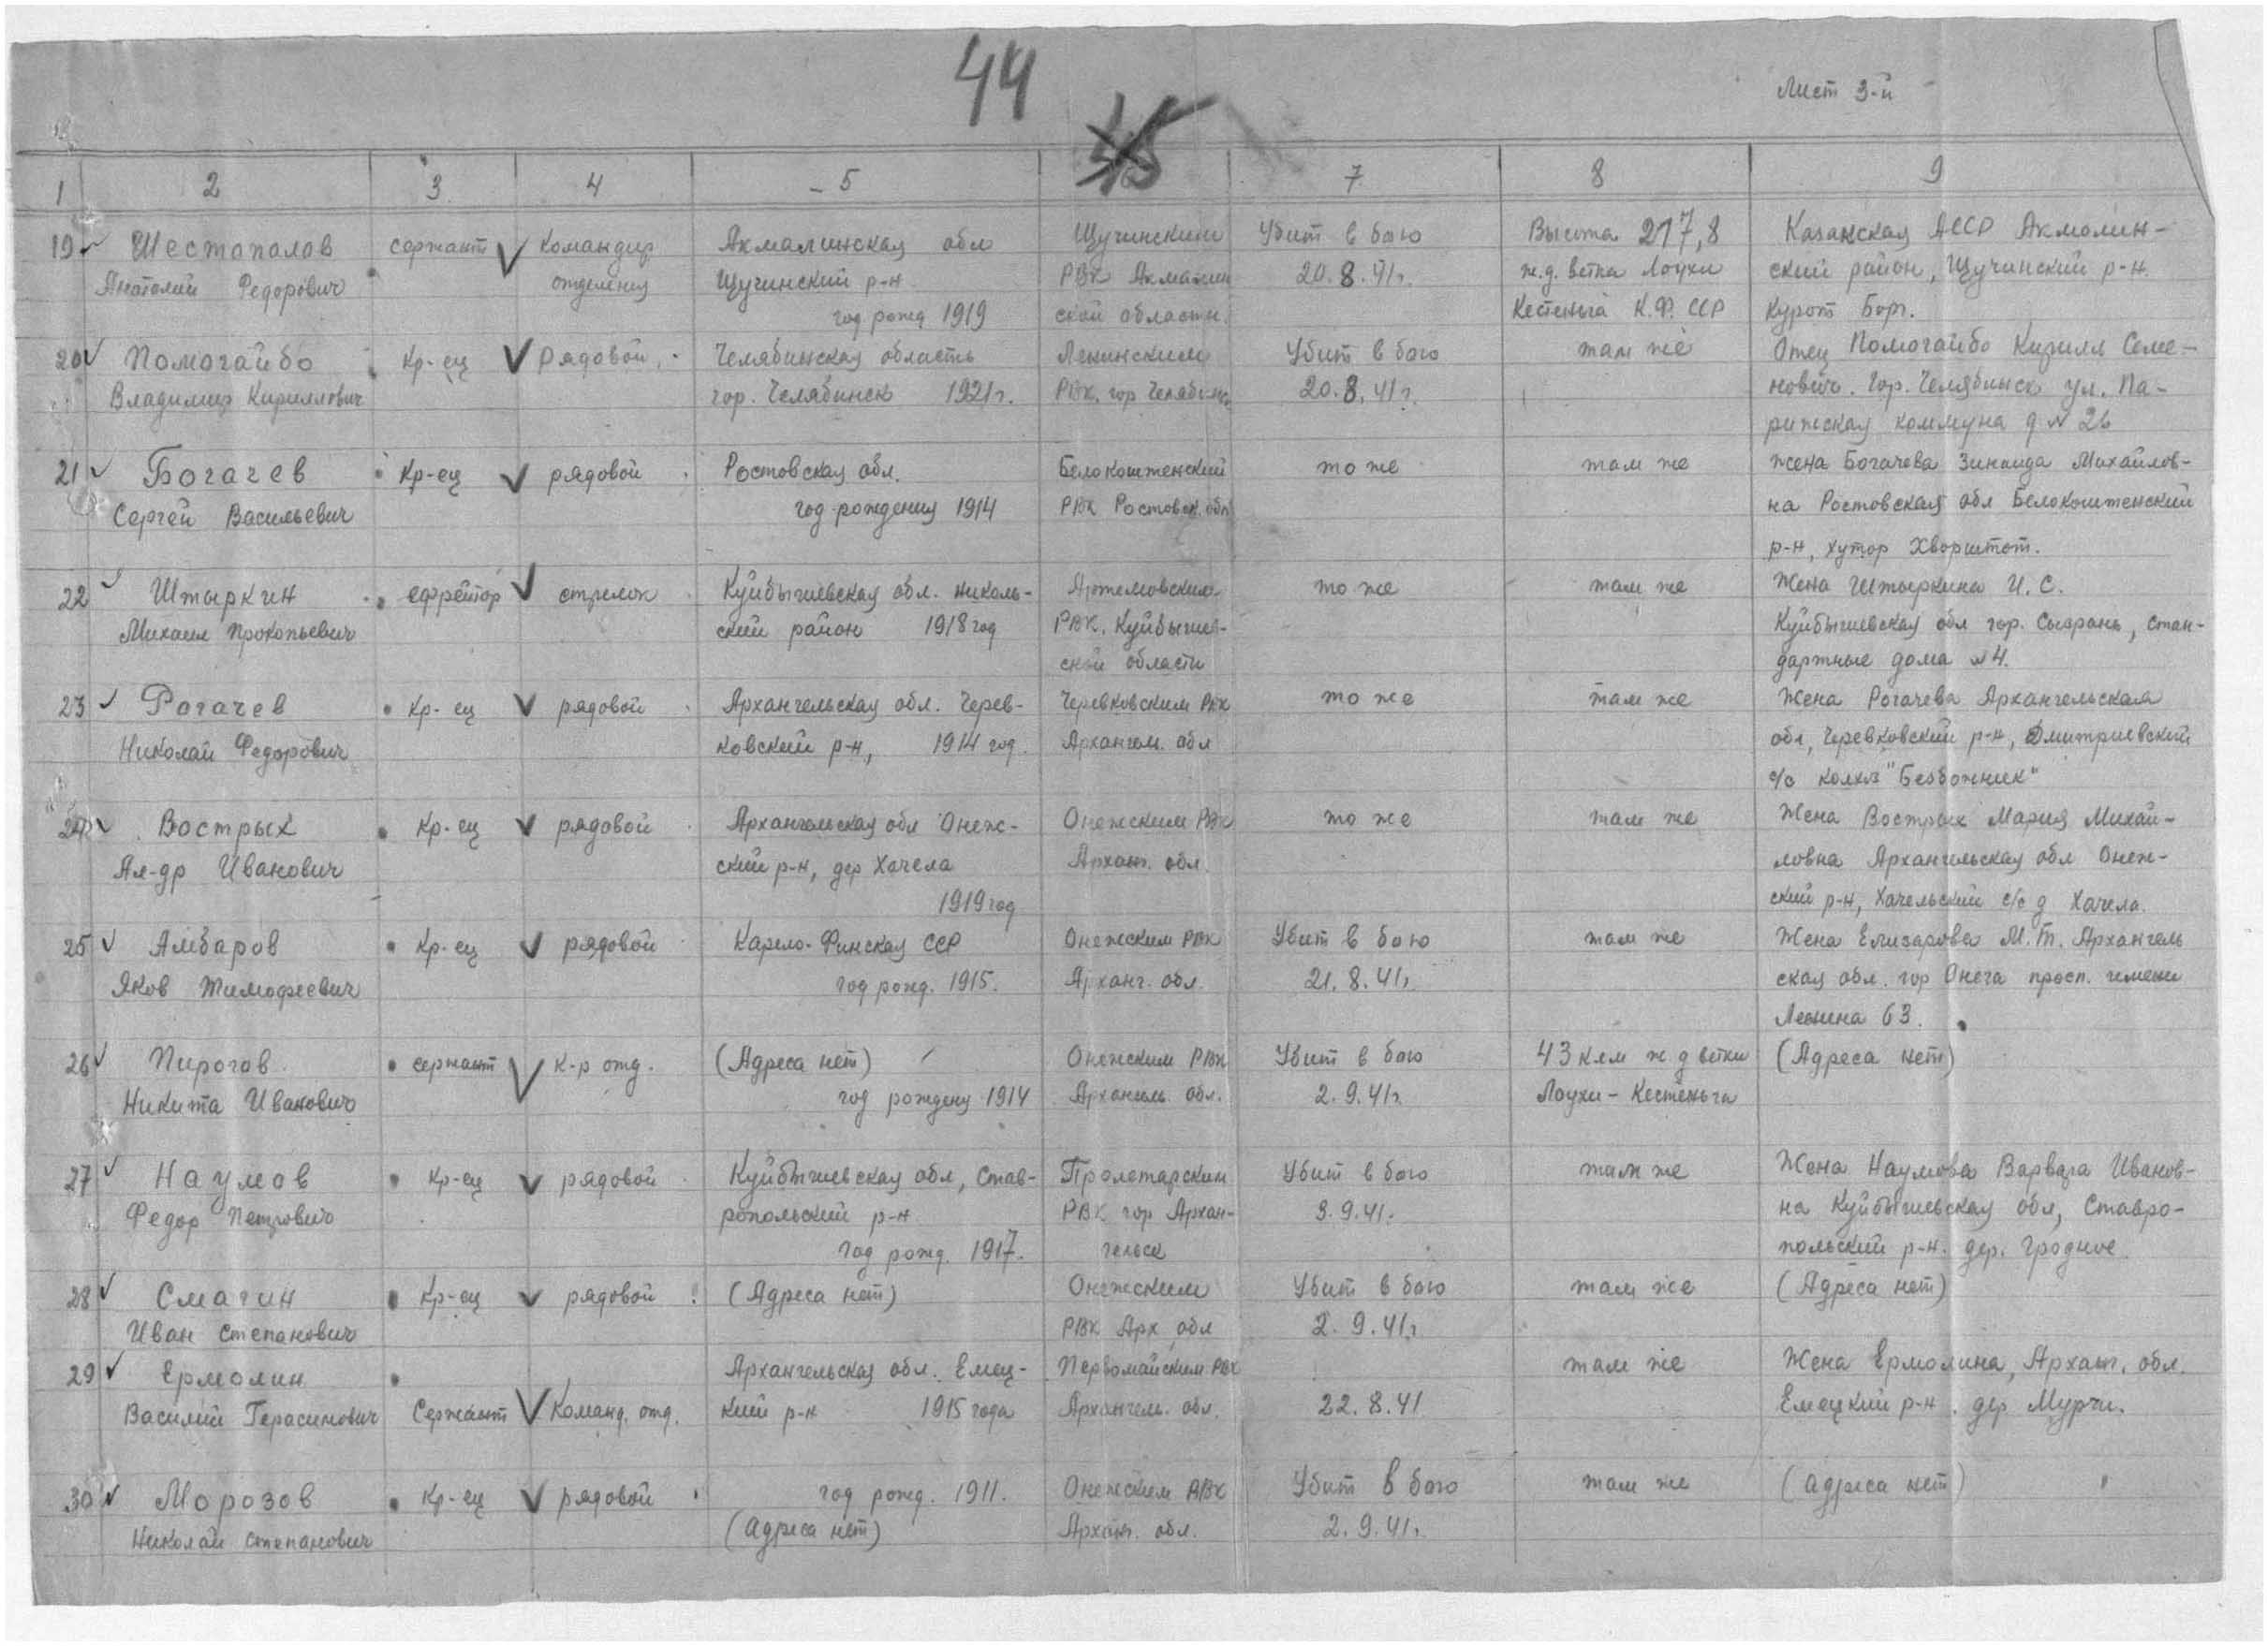 44
Лист 3-й
45
1 2 3 4 5 7 8 9
19 Шестопалов сержант командир Акмалинская обл Щучинским Убит в бою Высота 217,8 Казанская АССР Акмолин-
Анатолий Федорович отделения Щучинский р-н РВК Акмалин 20.8.41г. ж.д. ветка Лоухи ский район, Щучинский р-н.
год рожд 1919 ской области. Кестеньга К.Ф. ССР Курот Бор.
20 Помогайбо Кр-ец рядовой Челябинская область Ленинским Убит в бою там же Отец Помогайбо Кирилл Семе-
Владимир Кириллович гор. Челябинск 1921г. РВК. гор Челябинск 20.8.41г. нович. Гор. Челябинск ул. Па-
рижская коммуна д № 26
21 Богачев Кр-ец рядовой Ростовская обл. Белокоштенский то же там же жена Богачева Зинаида Михайлов-
Сергей Васильевич год рождения 1914 РВК Ростовск. обл на Ростовская обл Белокоштенский
р-н, хутор Хворштот.
22 Штыркин ефрейтор стрелок Куйбышевская обл. Николь- Артемовским то же там же Жена Штыркина И. С.
Михаил Прокопьевич ский район 1918 год РВК. Куйбышев- Куйбышевская обл гор. Сызрань, Стан-
ской области дартные дома №4.
23 Рогачев Кр-ец рядовой Архангельская обл. Черев- Черевковским РВК то же там же Жена Рогачева Архангельская
Николай Федорович ковский р-н, 1914 год. Архангел. обл обл, Черевковский р-н, Дмитриевский
с/с колхоз "Безбожник"
24 Вострых Кр-ец рядовой Архангельская обл Онеж- Онежским РВК то же там же Жена Вострых Мария Михай-
Ал-др Иванович ский р-н, дер Хачела Арханг. обл. ловна Архангельская обл Онеж-
1919 год ский р-н, Хачельский с/с д Хачела.
25 Амбаров Кр-ец рядовой Карело-Финская ССР Онежским РВК Убит в бою там же Жена Елизарова М.Т. Архангель
Яков Тимофеевич год рожд. 1915. Арханг. обл. 21.8.41г. ская обл. гор Онега просп. имени
Ленина 63.
26 Пирогов сержант к-р отд. (Адреса нет) Онежским РВК Убит в бою 43 клм ж д ветки (Адреса нет)
Никита Иванович год рождену 1914 Архангель. обл. 2.9.41г. Лоухи - Кестеньга
27 Наумов Кр-ец рядовой Куйбышевская обл, Став- Пролетарским Убит в бою там же Жена Наумова Варвара Иванов-
Федор Петрович ропольский р-н РВК гор Архан- 3.9.41. на Куйбышевская обл, Ставро-
год рожд. 1917. гельск польский р-н. дер. Гродное.
28 Смагин Кр-ец рядовой (Адреса нет) Онежским Убит в бою там же (Адреса нет)
Иван Степанович РВК Арх обл 2.9.41г.
29 Ермолин Архангельская обл. Емец- Первомайским РВК там же Жена Ермолина, Арханг. обл.
Василий Герасимович Сержант Команд. отд. кий р-н 1915 года Архангель. обл. 22.8.41 Емецкий р-н. дер Мурчи.
30 Морозов Кр-ец рядовой год рожд. 1911. Онежским РВК Убит в бою там же (Адреса нет)
Николай Степанович (Адреса нет) Арханг. обл. 2.9.41г.